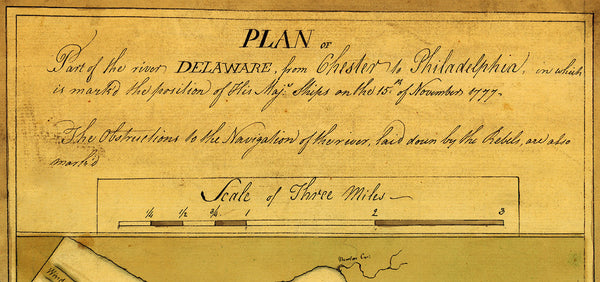 PLAN OF
Part of the river DELAWARE, from Chester to Philadelphia, in which
is mark'd the position of His Maj.s Ships on the 15.th of November 1777.
The Obstructions to the Navigation of the river, laid down by the Rebels, are also
mark'd
Scale of Three Miles
1/4 1/2 3/4 1 2 3